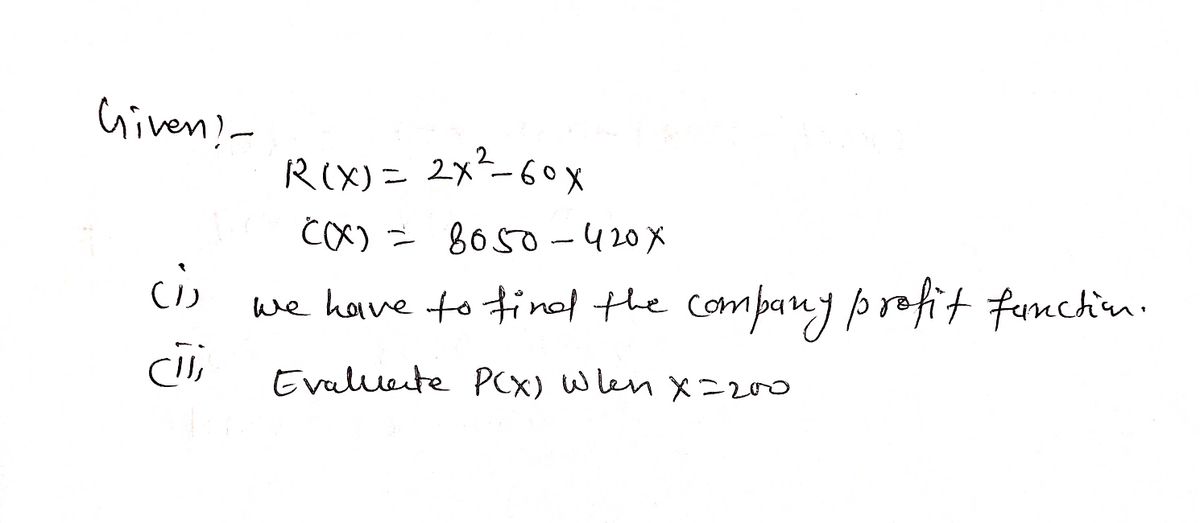 Given:-
R(X) = 2x²-60x
C(X) = 8050-420x
(i) we have to find the company profit function.
(ii) Evaluate P(X) when x=200